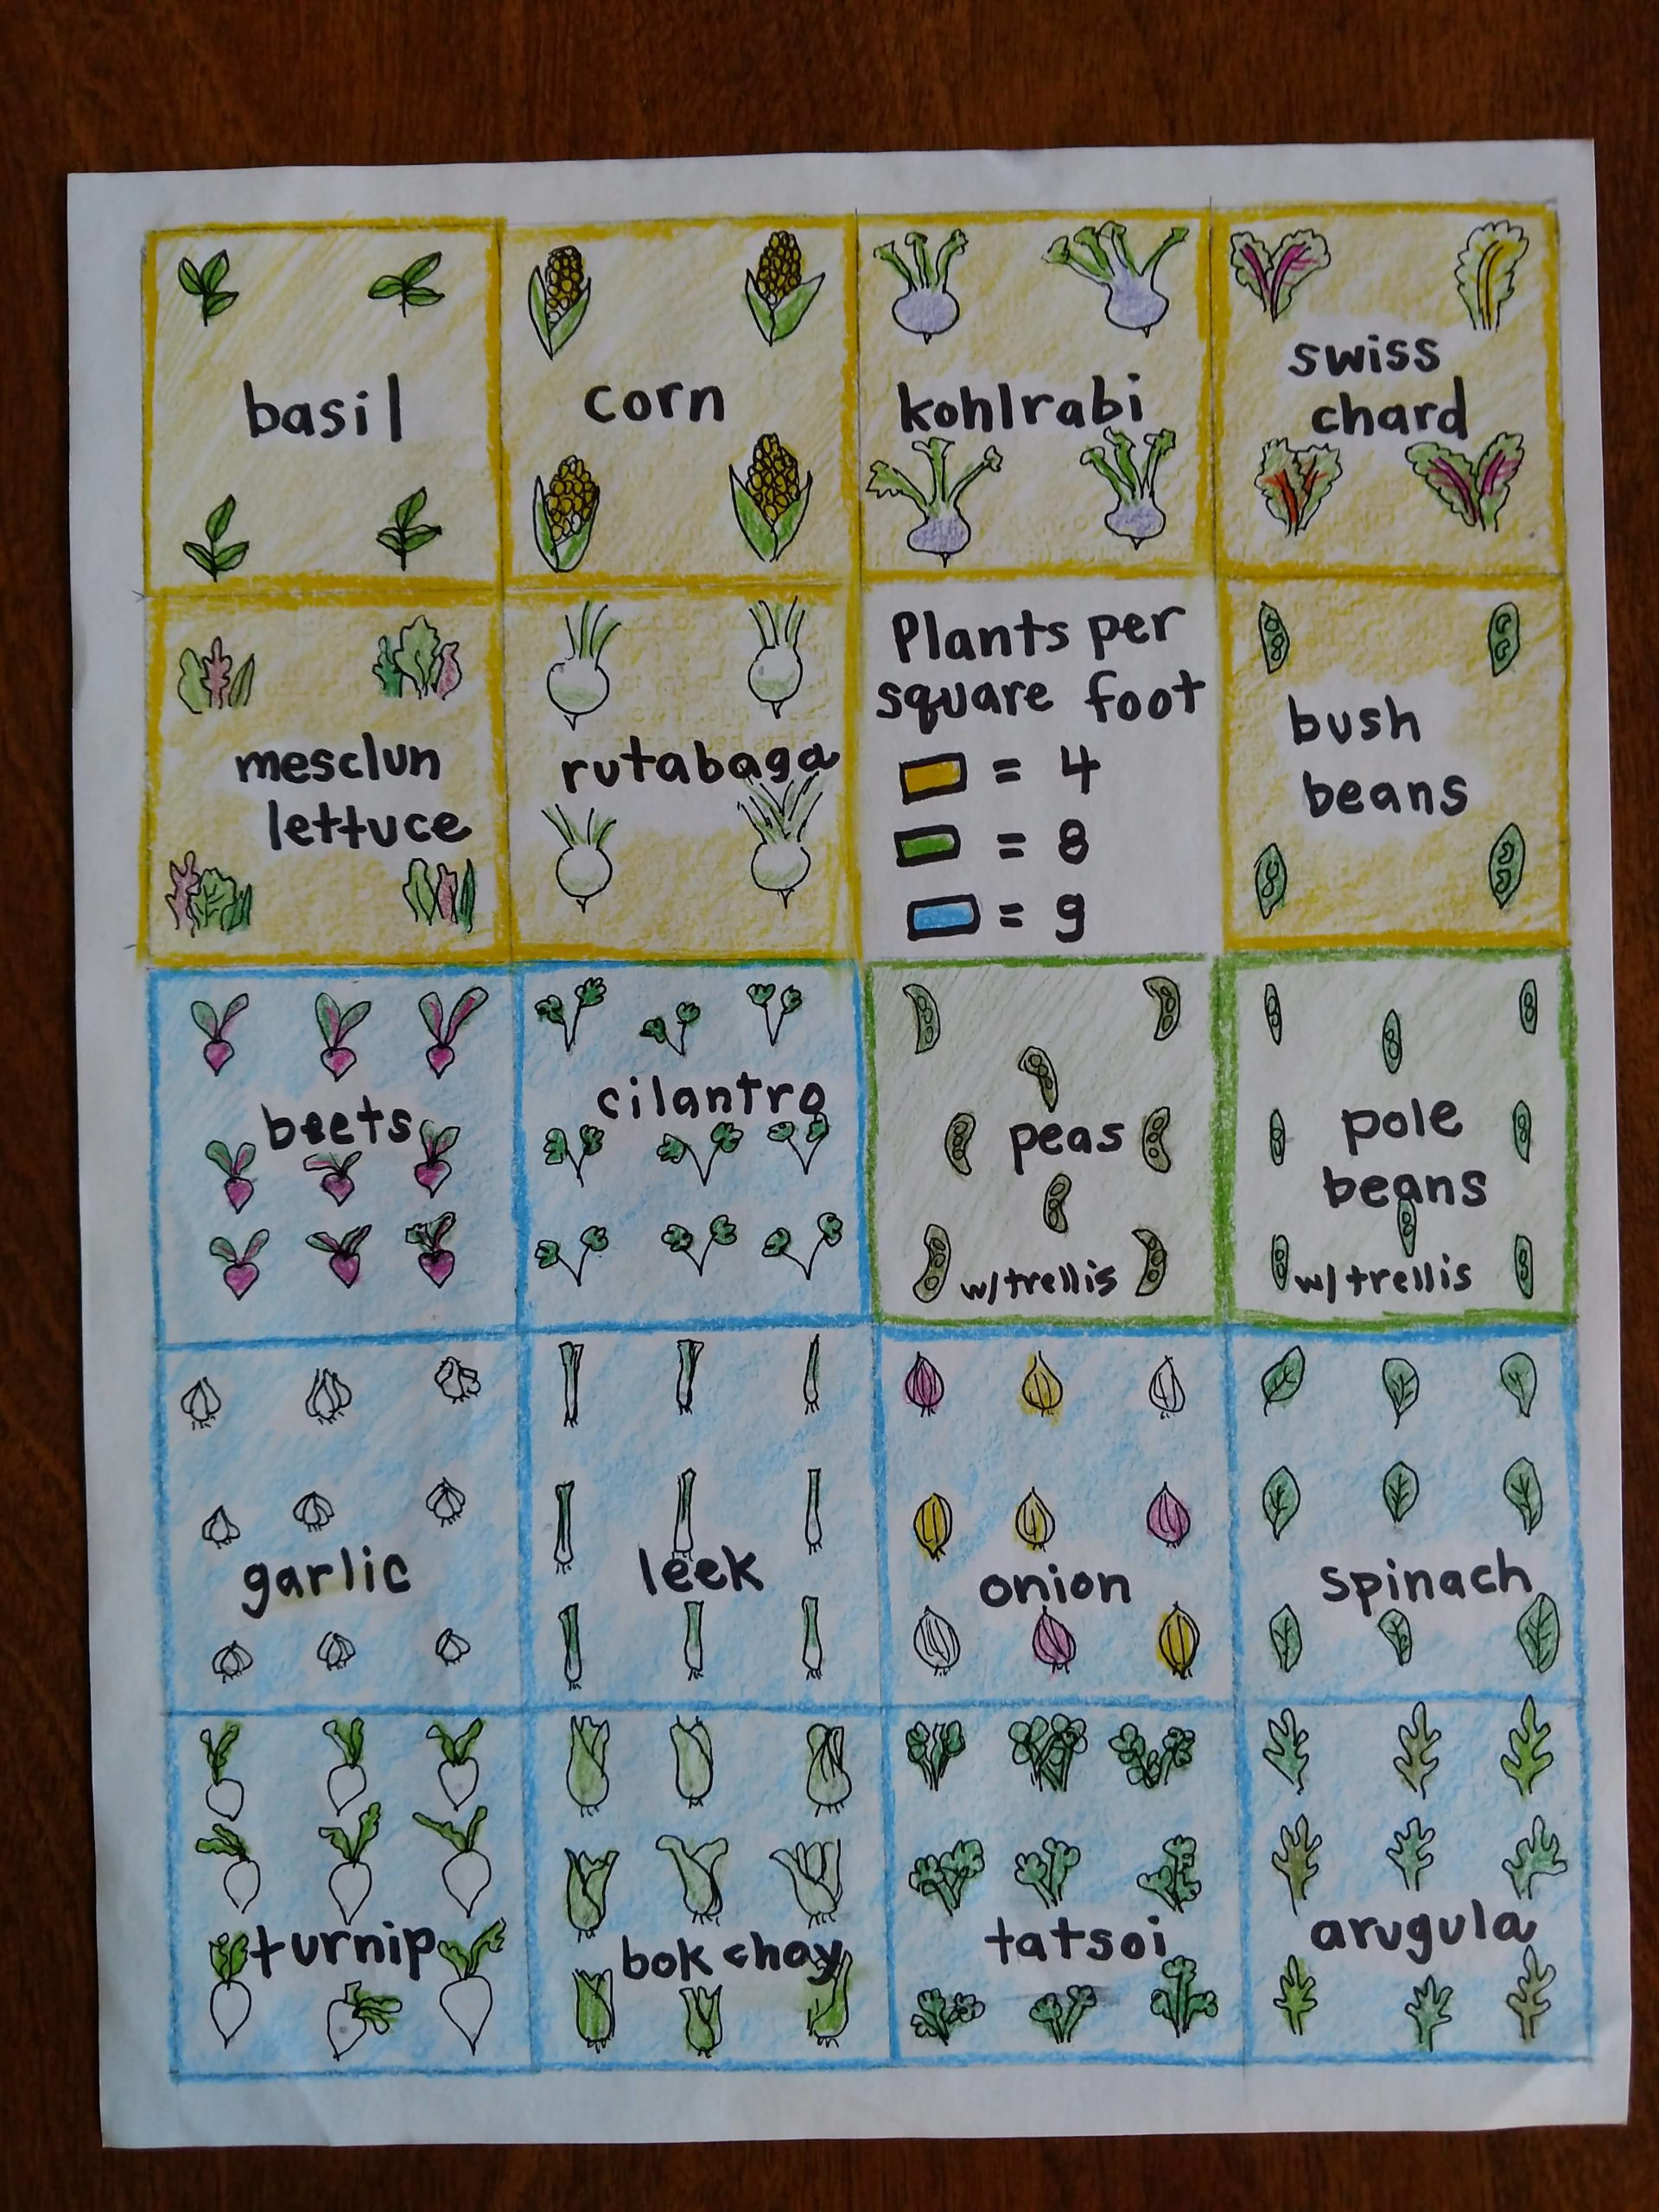 basil
corn
kohlrabi
swiss
chard
mesclun
lettuce
rutabaga
Plants per
square foot
= 4
= 8
= 9
bush
beans
beets
cilantro
peas
w/trellis
pole
beans
w/trellis
garlic
leek
onion
spinach
turnip
bok choy
tatsoi
arugula